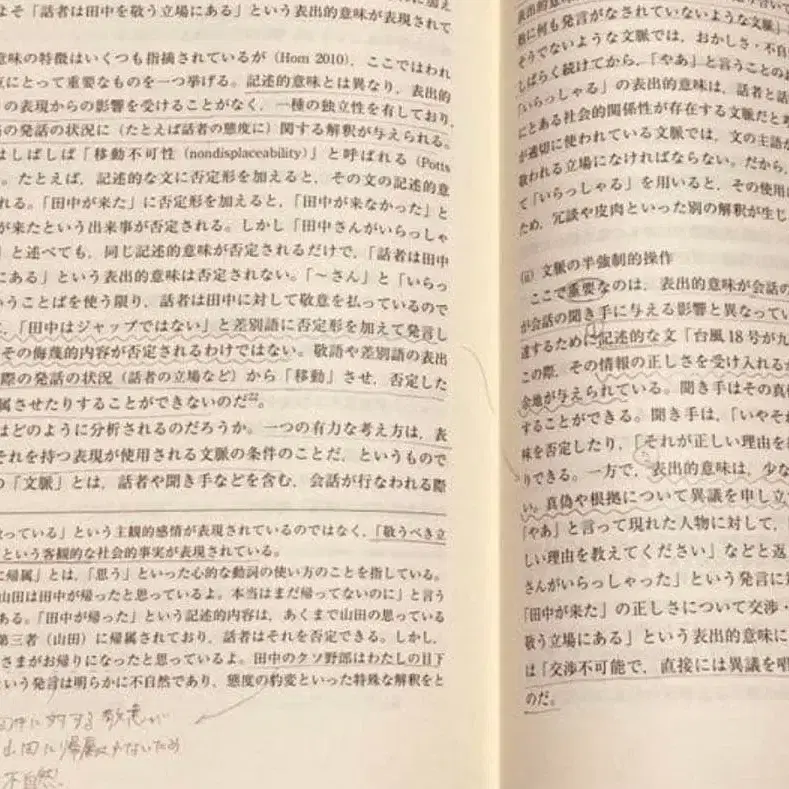 よそ「話者は田中を敬う立場にある」という表出的意味が表現されて
意味の特徴はいくつも指摘されているが（Horn 2010），ここではわれ
点にとって重要なものを一つ挙げる。記述的意味とは異なり，表出的
の表現からの影響を受けることがなく，一種の独立性を有しており，
の発話の状況に（たとえば話者の態度に）関する解釈が与えられる。
はしばしば「移動不可性（nondisplaceability）」と呼ばれる（Potts
。たとえば，記述的な文に否定形を加えると，その文の記述的意
れる。「田中が来た」に否定形を加えると，「田中が来なかった」と
が来たという出来事が否定される。しかし「田中さんがいらっしゃ
」と述べても，同じ記述的意味が否定されるだけで，「話者は田中
にある」という表出的意味は否定されない。「〜さん」と「いらっ
いうことばを使う限り，話者は田中に対して敬意を払っているので
，「田中はジャップではない」と差別語に否定形を加えて発言し
その侮蔑的内容が否定されるわけではない。敬語や差別語の表出
際の発話の状況（話者の立場など）から「移動」させ，否定した
属させたりすることができないのだ²²。
はどのように分析されるのだろうか。一つの有力な考え方は，表
それを持つ表現が使用される文脈の条件のことだ，というもので
の「文脈」とは，話者や聞き手などを含む，会話が行なわれる際
っている」という主観的感情が表現されているのではなく，「敬うべき立
という客観的な社会的事実が表現されている。
に帰属」とは，「思う」といった心的な動詞の使い方のことを指している。
山田は田中が帰ったと思っているよ。本当はまだ帰ってないのに」と言う
ある。「田中が帰った」という記述的内容は，あくまで山田の思っている
第三者（山田）に帰属されており，話者はそれを否定できる。しかし，
さまがお帰りになったと思っているよ。田中のクソ野郎はわたしの目下
いう発言は明らかに不自然であり，態度の豹変といった特殊な解釈をと
田中に対する敬意が
山田に帰属 ないため
不自然
に何も発言がなされていないような文脈」
そうでないような文脈では，おかしさ・不自
しばらく続けてから，「やあ」と言うことのお
「いらっしゃる」の表出的意味は，話者と話
にとある社会的関係性が存在する文脈だと考
が適切に使われている文脈では，文の主語が
敬われる立場になければならない。だから，
て「いらっしゃる」を用いると，その使用に
ため，冗談や皮肉といった別の解釈が生じ
(ii) 文脈の半強制的操作
ここで重要なのは，表出的意味が会話の
が会話の聞き手に与える影響と異なってい
達するために記述的な文「台風18号が九
この際，その情報の正しさを受け入れるか
余地が与えられている。聞き手はその真偽
することができる。聞き手は，「いやそれ
味を否定したり，「それが正しい理由を
りできる。一方で，表出的意味は，少な
い。真偽や根拠について異議を申し立
「やあ」と言って現れた人物に対して，
しい理由を教えてください」などと返
さんがいらっしゃった」という発言に
「田中が来た」の正しさについて交渉・
敬う立場にある」という表出的意味に
は「交渉不可能で，直接には異議を唱
のだ。